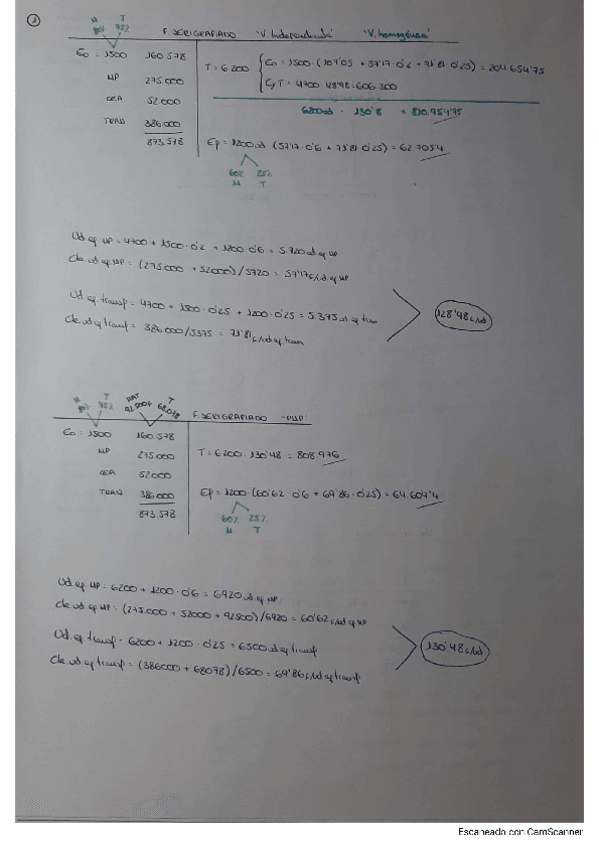 1
M T
80% 75%
F. SERIGRAFIADO "V. Independiente" "V. homogénea"
Eo = 1500 160.578
MP 275.000
CEA 52.000
TRANS 386.000
873.578
T = 6200 { Eo = 1500 · (107'05 + 57'17 · 0'2 + 71'81 · 0'25) = 204.654'75
CyT = 4700 · 128'98 = 606.300
6200 ud · 130'8 = 810.954'75
Ep = 1200 ud (57'17 · 0'6 + 71'81 · 0'25) = 62.705'4
60% 25%
M T
Ud eq MP = 4700 + 1500 · 0'2 + 1200 · 0'6 = 5.720 ud eq MP
Cte ud eq MP = (275.000 + 52000) / 5720 = 57'17 €/ud eq MP
Ud eq transf = 4700 + 1500 · 0'25 + 1200 · 0'25 = 5.375 ud eq tran
Cte ud eq transf = 386.000 / 5375 = 71'81 €/ud eq tran
128'98 €/ud
M T MAT T
80% 75% 92.500 68.078
F. SERIGRAFIADO "PMP"
Eo = 1500 160.578
MP 275.000
CEA 52.000
TRANS 386.000
873.578
T = 6200 · 130'48 = 808.976
Ep = 1200 · (60'62 · 0'6 + 69'86 · 0'25) = 64.604'4
60% 25%
M T
Ud eq MP = 6200 + 1200 · 0'6 = 6920 ud eq MP
Cte ud eq MP = (275.000 + 52000 + 92500) / 6920 = 60'62 €/ud eq MP
Ud. eq transf = 6200 + 1200 · 0'25 = 6500 ud eq transf
Cte ud eq transf = (386000 + 68078) / 6500 = 69'86 €/ud eq transf
130'48 €/ud
Escaneado con CamScanner